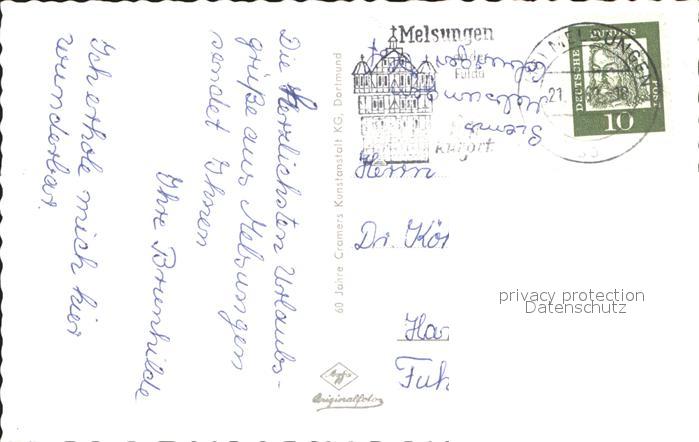 Die Herzlichsten Urlaubs-
grüße aus Melsungen
sendet Ihnen
Ihre Brunhilde
Ich erhole mich hier
wunderbar.
60 Jahre Cramers Kunstanstalt KG, Dortmund
Agfa
Originalfoto
Melsungen
Fulda
Kurort
MELSUNGEN
21.
DEUTSCHE BUNDESPOST
10
Herrn
Dr. Kör
Ha
Fuh
privacy protection
Datenschutz